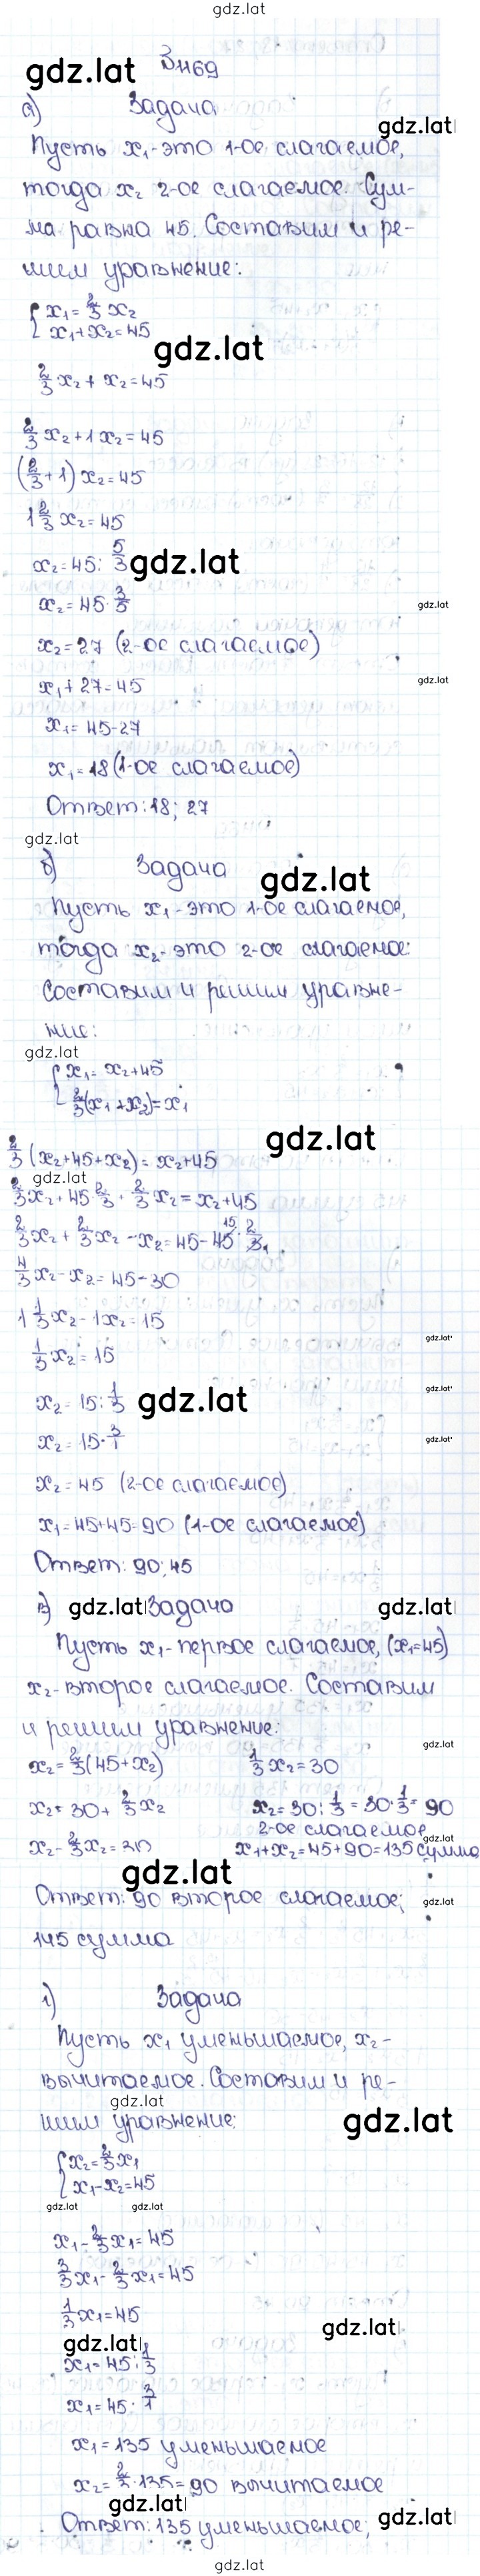 gdz.lat
gdz.lat
№1169
а) Задача
gdz.lat
Пусть x₁-это 1-ое слагаемое,
тогда x₂ 2-ое слагаемое. Сум-
ма равна 45. Составим и ре-
шим уравнение:
x₁ = 2/3 x₂
x₁+x₂=45
gdz.lat
2/3 x₂ + x₂=45
2/3 x₂+1x₂=45
(2/3+1) x₂=45
1 2/3 x₂=45
x₂=45: 5/3
gdz.lat
x₂=45· 3/5
gdz.lat
x₂=27 (2-ое слагаемое)
x₁+27=45
gdz.lat
x₁=45-27
x₁=18 (1-ое слагаемое)
Ответ: 18; 27
gdz.lat
б) Задача
gdz.lat
Пусть x₁-это 1-ое слагаемое,
тогда x₂-это 2-ое слагаемое.
Составим и решим уравне-
ние:
gdz.lat
x₁=x₂+45
2/3(x₁+x₂)=x₁
gdz.lat
2/3(x₂+45+x₂)=x₂+45
gdz.lat
2/3x₂+45 2/3+2/3x₂=x₂+45
2/3x₂+2/3x₂-x₂=45-45 15 2/3 1
4/3x₂-x₂=45-30
1 1/3x₂-1x₂=15
gdz.lat
1/3x₂=15
gdz.lat
x₂=15: 1/3
gdz.lat
x₂=15· 3/1
gdz.lat
x₂=45 (2-ое слагаемое)
x₁=45+45=90 (1-ое слагаемое)
Ответ: 90; 45
в) gdz.lat Задача
gdz.lat
Пусть x₁-первое слагаемое, (x₁=45)
x₂-второе слагаемое. Составим
и решим уравнение:
gdz.lat
x₂=2/3(45+x₂) 1/3x₂=30
x₂=30+2/3x₂ x₂=30: 1/3=30· 1/3=90
2-ое слагаемое
gdz.lat
x₂-2/3x₂=30 x₁+x₂=45+90=135 сумма
gdz.lat
Ответ: 90 второе слагаемое;
gdz.lat
145 сумма
г) Задача
Пусть x₁ уменьшаемое, x₂-
вычитаемое. Составим и ре-
gdz.lat
шим уравнение:
gdz.lat
x₂=2/3x₁
x₁-x₂=45
gdz.lat
gdz.lat
x₁-2/3x₁=45
3/3x₁-2/3x₁=45
1/3x₁=45
gdz.lat
gdz.lat
x₁=45: 1/3
x₁=45· 3/1
x₁=135 уменьшаемое
x₂=2/3·135=90 вычитаемое
gdz.lat
Ответ: 135 уменьшаемое;
gdz.lat
gdz.lat